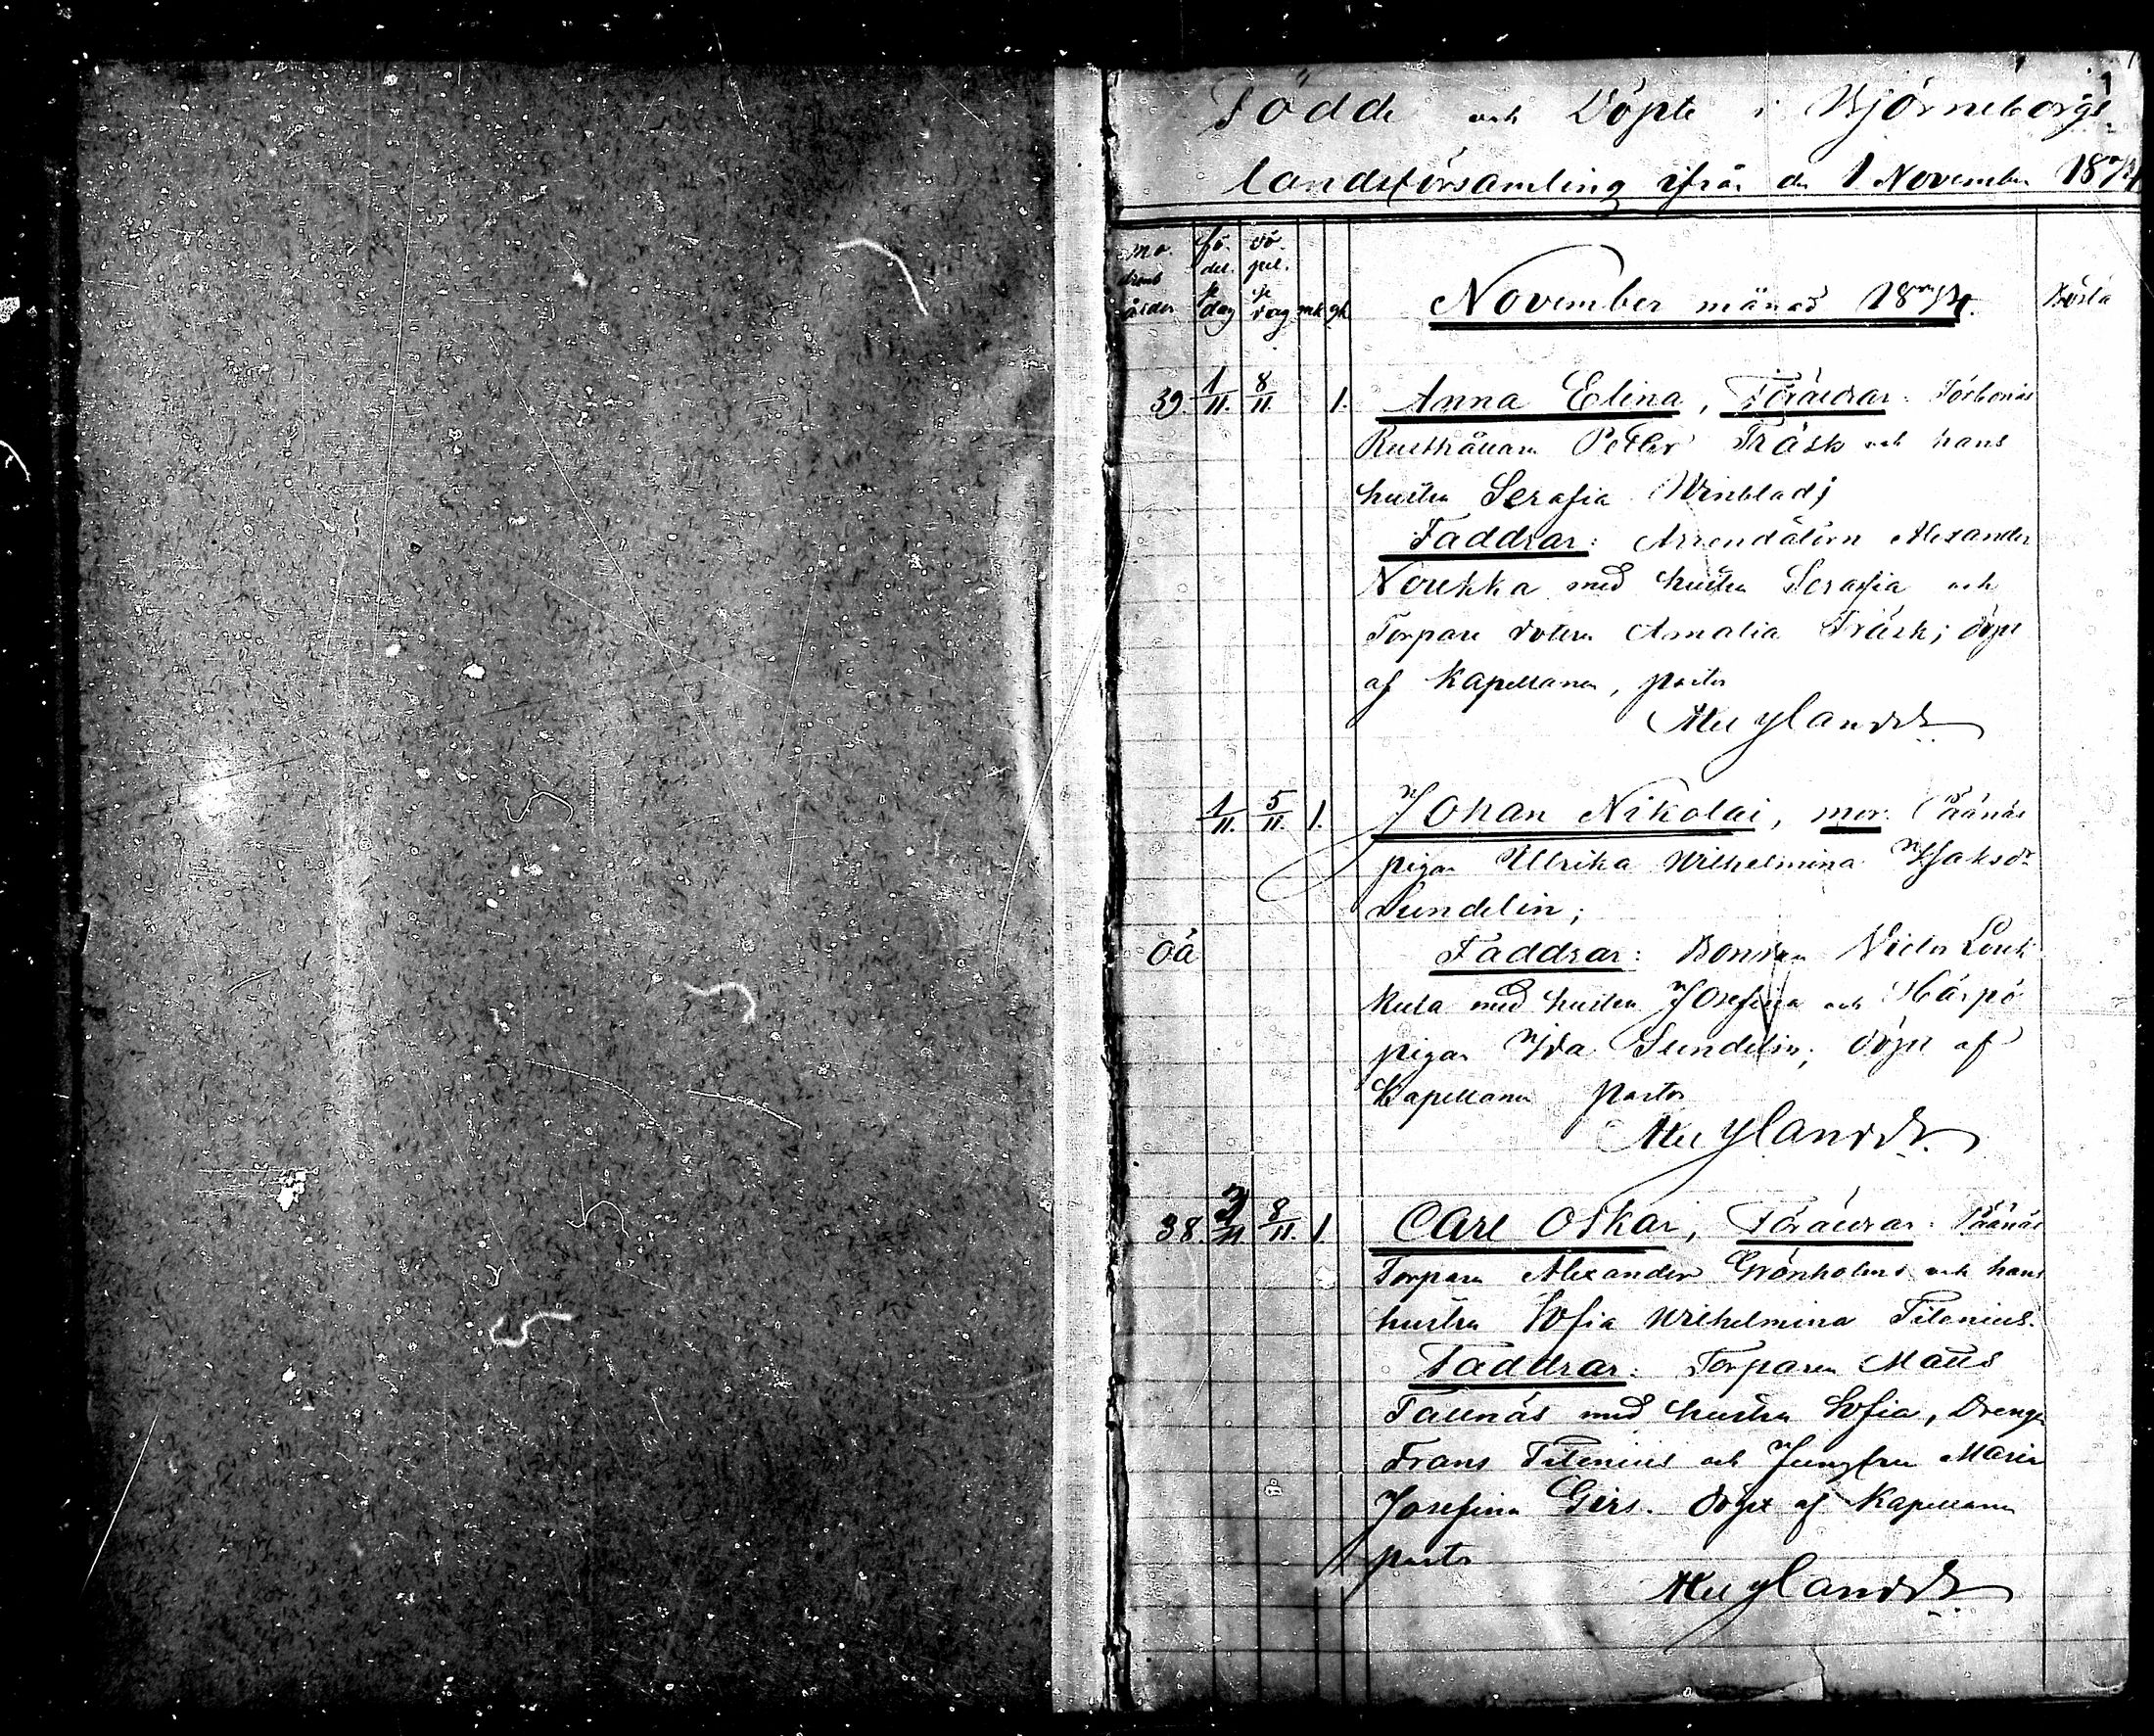 1
Födde och Döpte i Björneborgs
landsförsamling ifrån den 1 November 1874
Mo. Fö. Dö.
drens del. pel.
ålder se dag se dag mk qk November månad 1874.
39. 1/11. 8/11. 1. Anna Elina, Föräldrar: Torbonäs
Rusthållaren Petter Träsk och hans
hustru Serafia Winblad;
Faddrar: Arrendatorn Alexander
Noukka med hustru Serafia och
Torpare dotern Amalia Träsk; döpt
af Kapellanen, pastor
Nylander
1/11. 5/11. 1. Johan Nikolai, mor: Påänäs
pigan Ullrika Wilhelmina Isaksdr
Sundelin;
Oä Faddrar: Bonden Victor Louk
kula med hustru Josefina och Härpö
pigan Ida Sundelin; döpt af
Kapellanen pastor
Nylander
38. 3/11 8/11. 1. Carl Oskar, Föräldrar: Påänäs
Torparen Alexander Grönholm och hans
hustru Sofia Wilhelmina Filenius.
Faddrar: Torparen Matts
Tallnäs med hustru Sofia, Drengen
Frans Filenius och Jungfru Maria
Josefina Girs. Döpt af Kapellanen
pastor
Nylander